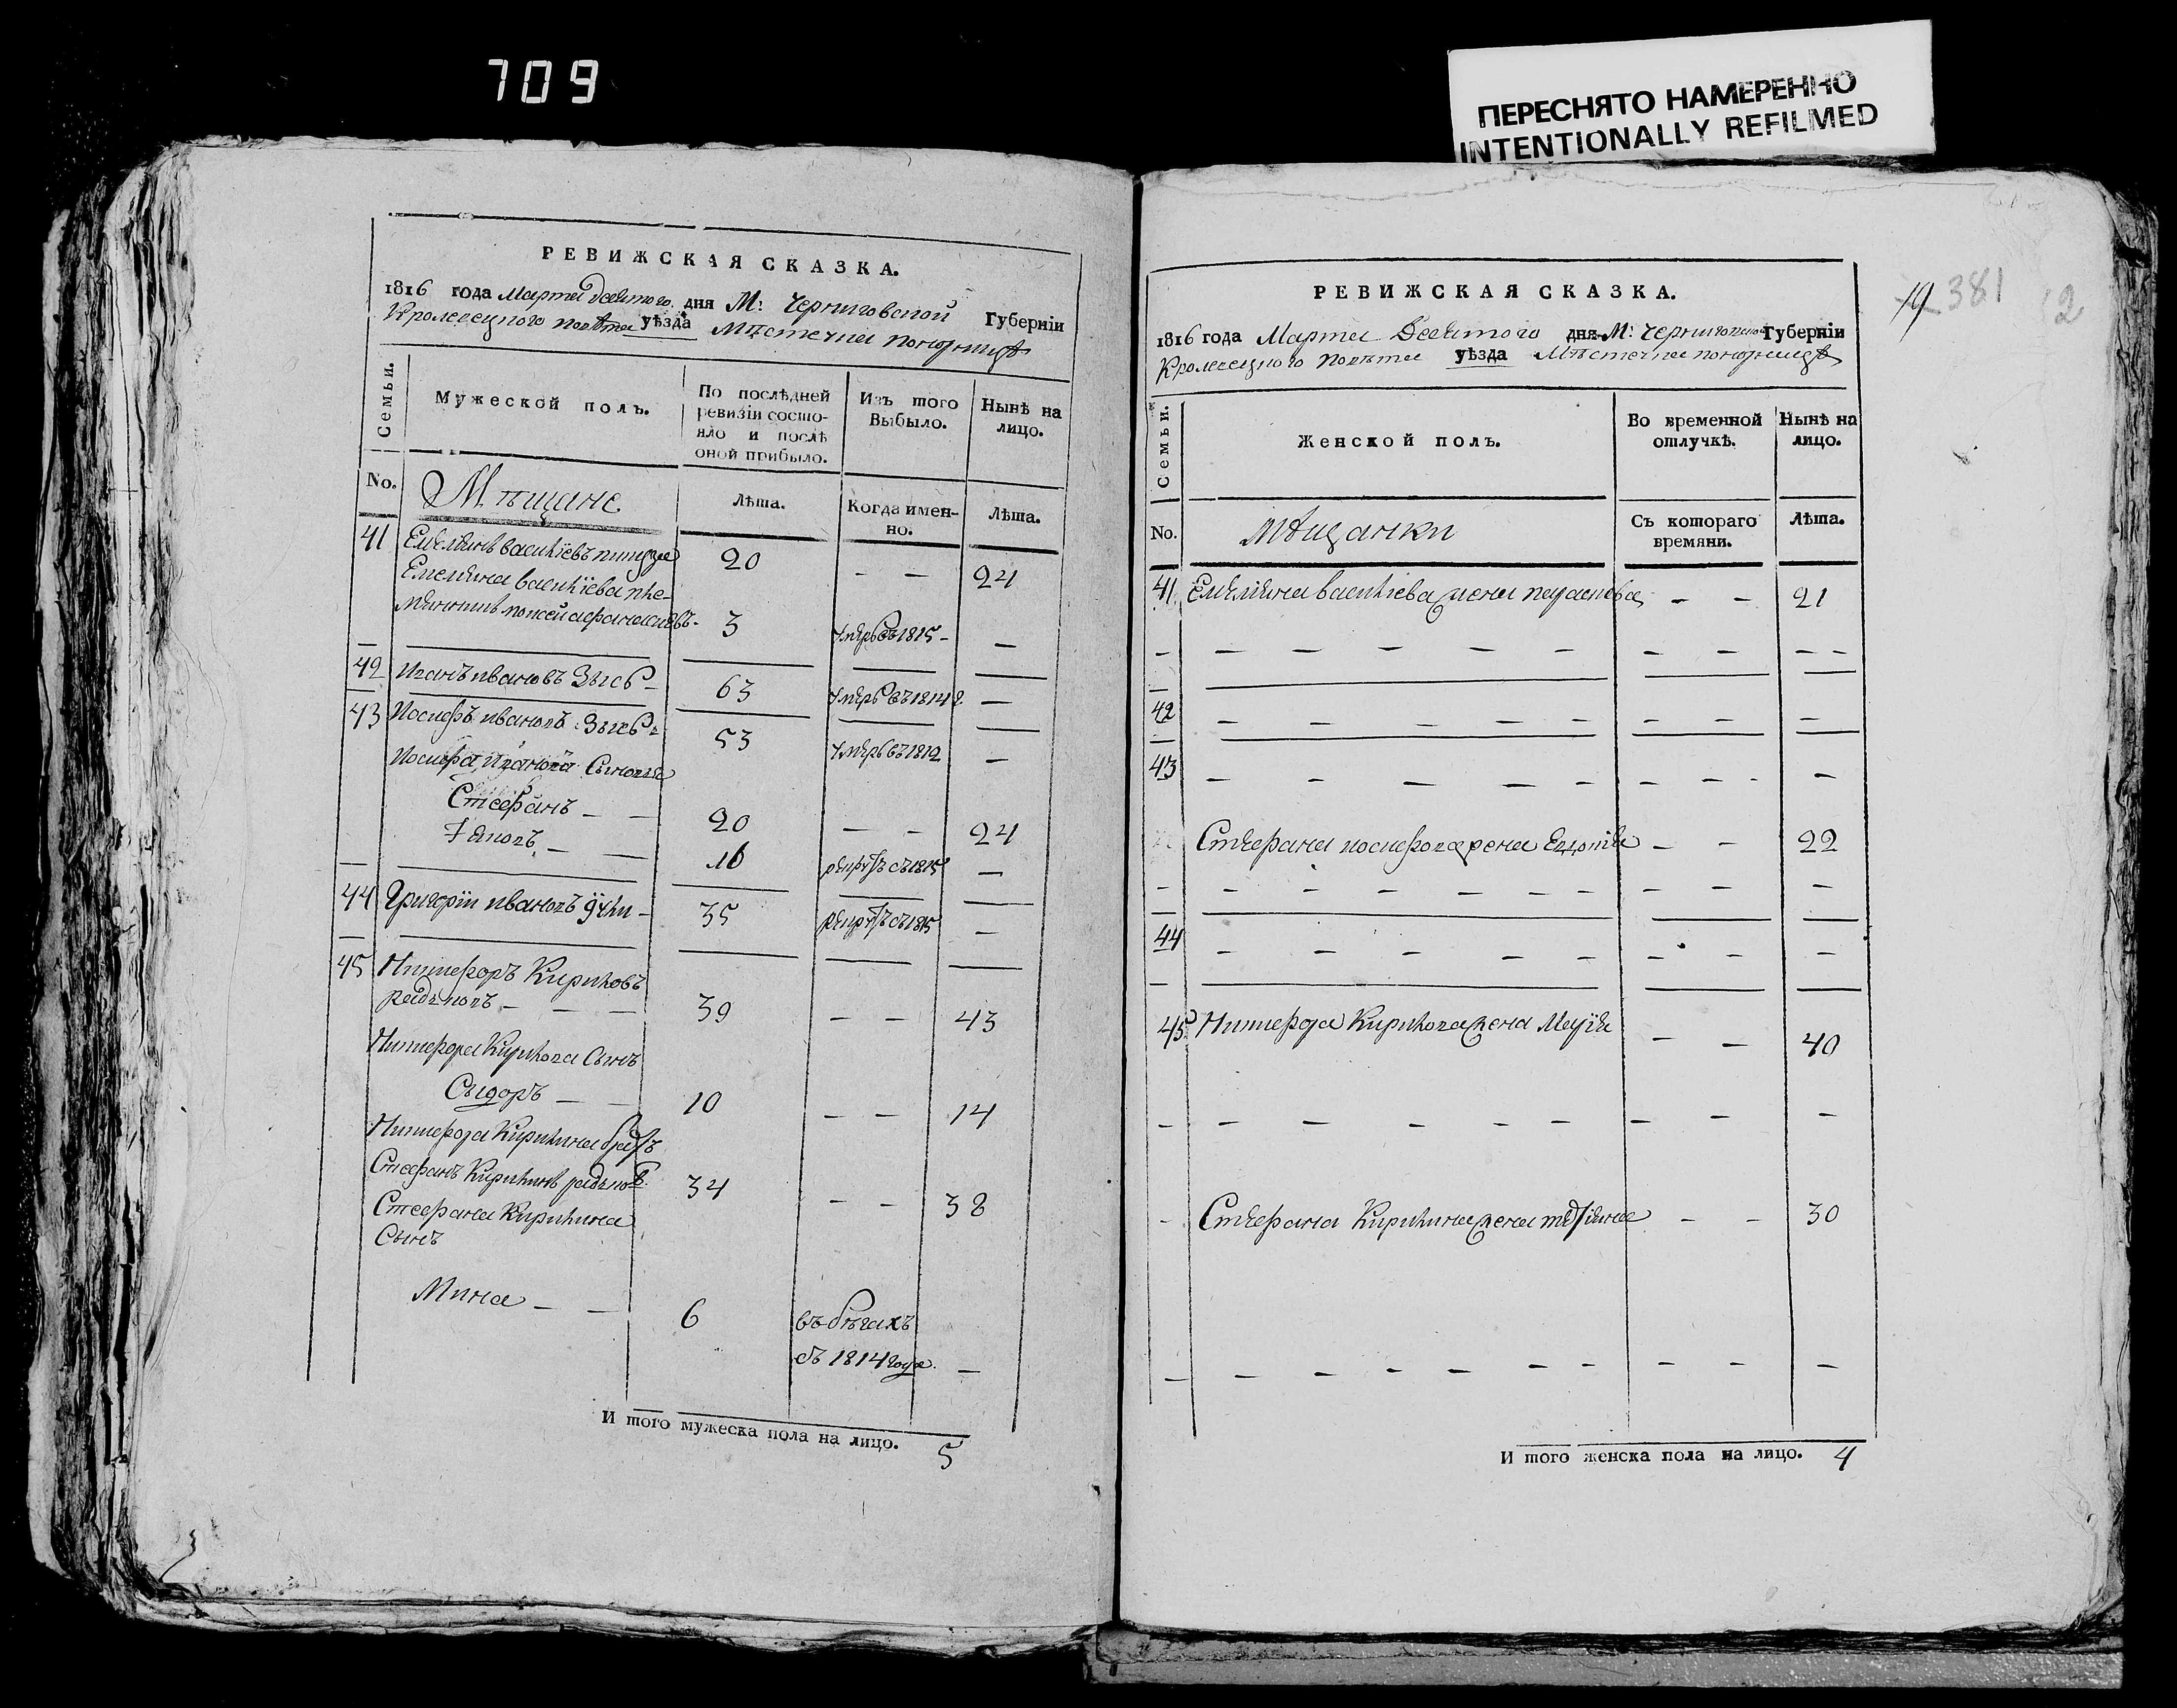 709
ПЕРЕСНЯТО НАМЕРЕННО
INTENTIONALLY REFILMED
РЕВИЖСКАЯ СКАЗКА.
1816 года Марта Десятого дня М: Черниговской Губерніи
Кролевецкого повѣта уѣзда Мѣстечка Понорницѣ
Семьи.
Мужеской полъ.
По послѣдней ревизіи состояло и послѣ оной прибыло.
Изъ того Выбыло.
Нынѣ на лицо.
No.
Мѣщане
Лѣта.
Когда именно.
Лѣта.
41 Емелянъ Василіевъ 20 — — 24
Емеляна Василіева пле-
мянникъ 3 умеръ въ 1815 —
42 Иванъ Ивановъ 63 умеръ въ 1814 г. —
43 Иосифъ Ивановъ 53 умеръ въ 1812 —
Иосифа Иванова Сыновя
Стефанъ — — 20 — — 24
Яковъ — — 16 рекрутъ съ 1815 —
44 Григорій Ивановъ 35 рекрутъ съ 1815 —
45 Никифоръ Кириловъ
— — 39 — — 43
Никифора Кирилова Сынъ
Сидоръ — — 10 — — 14
Никифора Кирилина братъ
Стефанъ Кирилинъ 34 — — 38
Стефана Кирилина
Сынъ
Мина — — 6 въ бѣгахъ
съ 1814 года. —
И того мужеска пола на лицо. 5
19 381 2
РЕВИЖСКАЯ СКАЗКА.
1816 года Марта Десятого дня М: Черниговской Губерніи
Кролевецкого Повѣта уѣзда Мѣстечка Понорницѣ
Семьи.
Женской полъ.
Во временной отлучкѣ.
Нынѣ на лицо.
No.
Мѣщанки
Съ котораго времяни.
Лѣта.
41 Емеляна Василіева жена Параскева — — 21
42
43
Стефана Иосифова жена — — 22
44
45 Никифора Кирилова жена Марія — — 40
Стефана Кирилина жена Татіяна — — 30
И того женска пола на лицо. 4